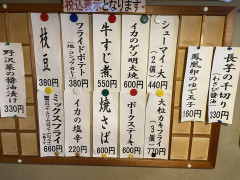 税込表示となります
長芋の千切り
(わさび醤油)
330円
鳳凰卵のゆで玉子
160円
シューマイ・大
(2個)
440円
大粒カキフライ
(3個)
770円
イカのゲソ明太焼
600円
ポークステーキ
600円
牛すじ煮
550円
焼そば
600円
フライドポテト
380円
イカの塩辛
220円
枝豆
380円
ミックスフライ
660円
野沢菜の醤油漬け
330円